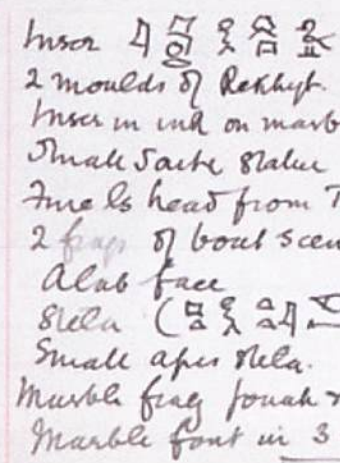 Inscr
2 moulds of Rekhyt.
Inscr in ink on marb
Small Saite statue
Fine ls head from T
2 frags of boat scen
Alab face
Stela (
Small apis stela.
Marble frag
Marble font in 3